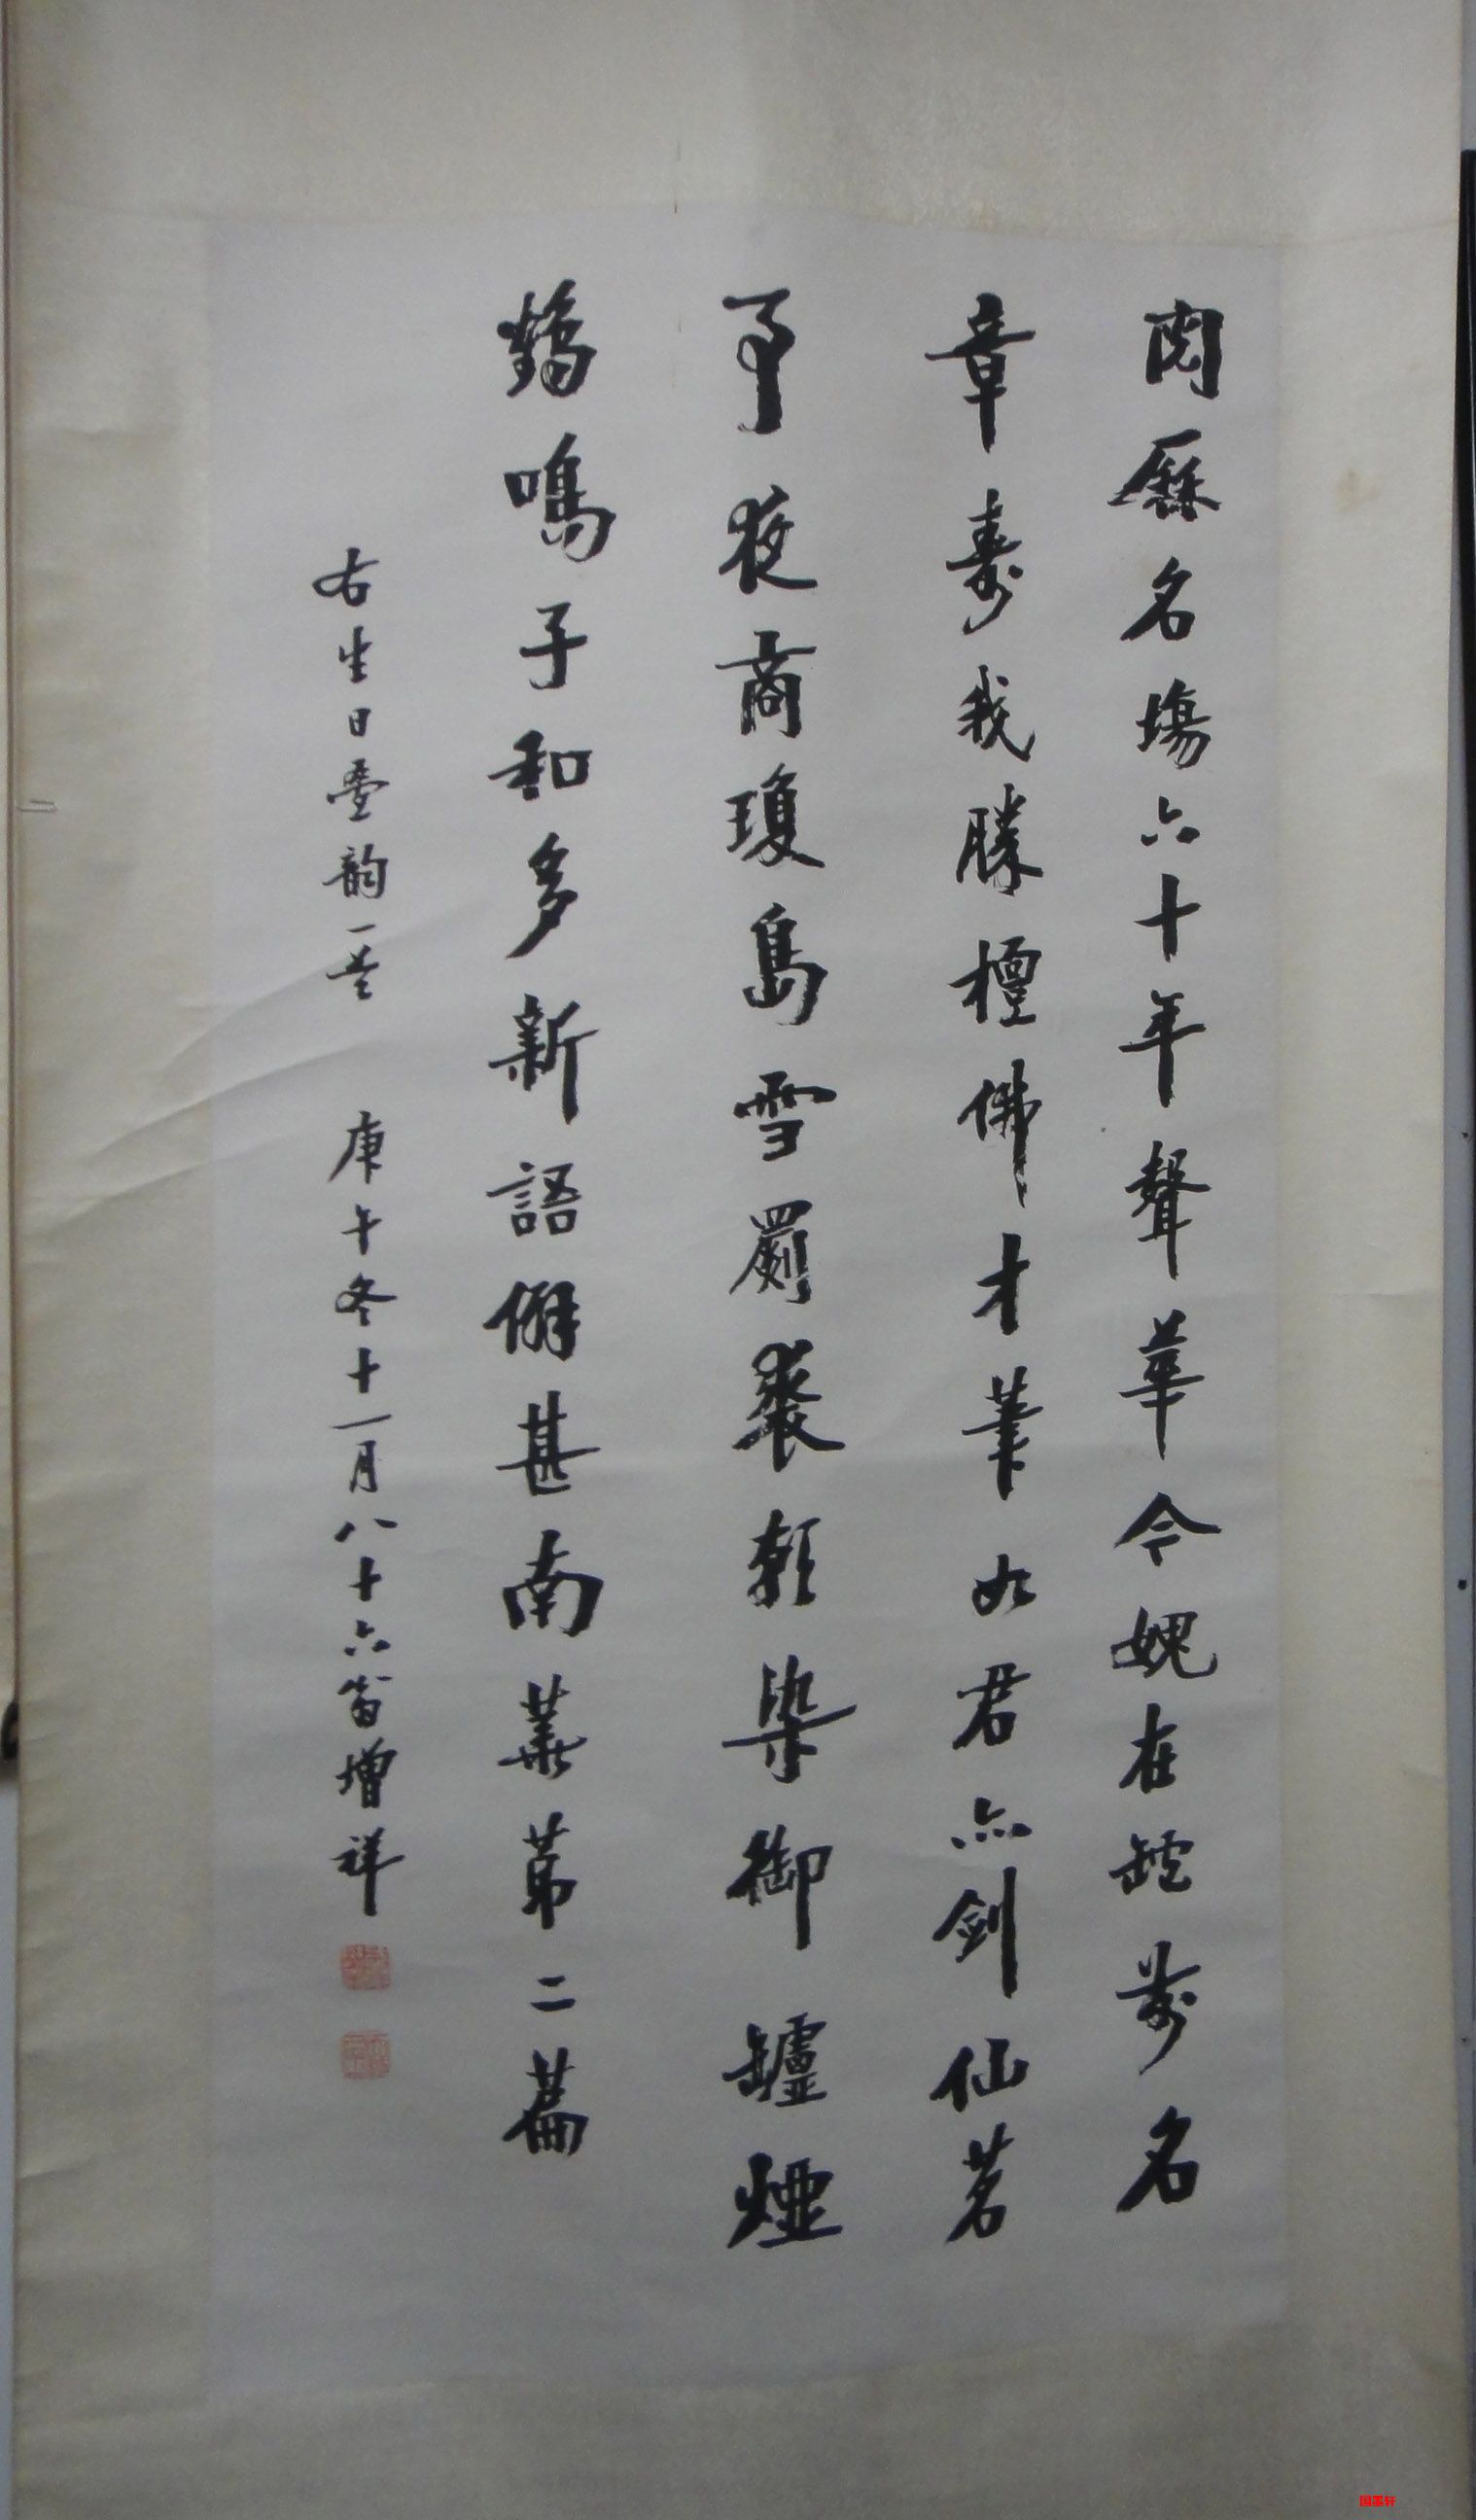 閱歷名場六十年聲華今媿在前名
章壽我勝檀佛才筆如君亦劍仙茗
事夜商瓊島雪罽裘朝染御罏煙
鶴鳴子和多新語僻甚南華第二篇
右生日疊韵一首 庚午冬十一月八十六翁增祥
国墨轩